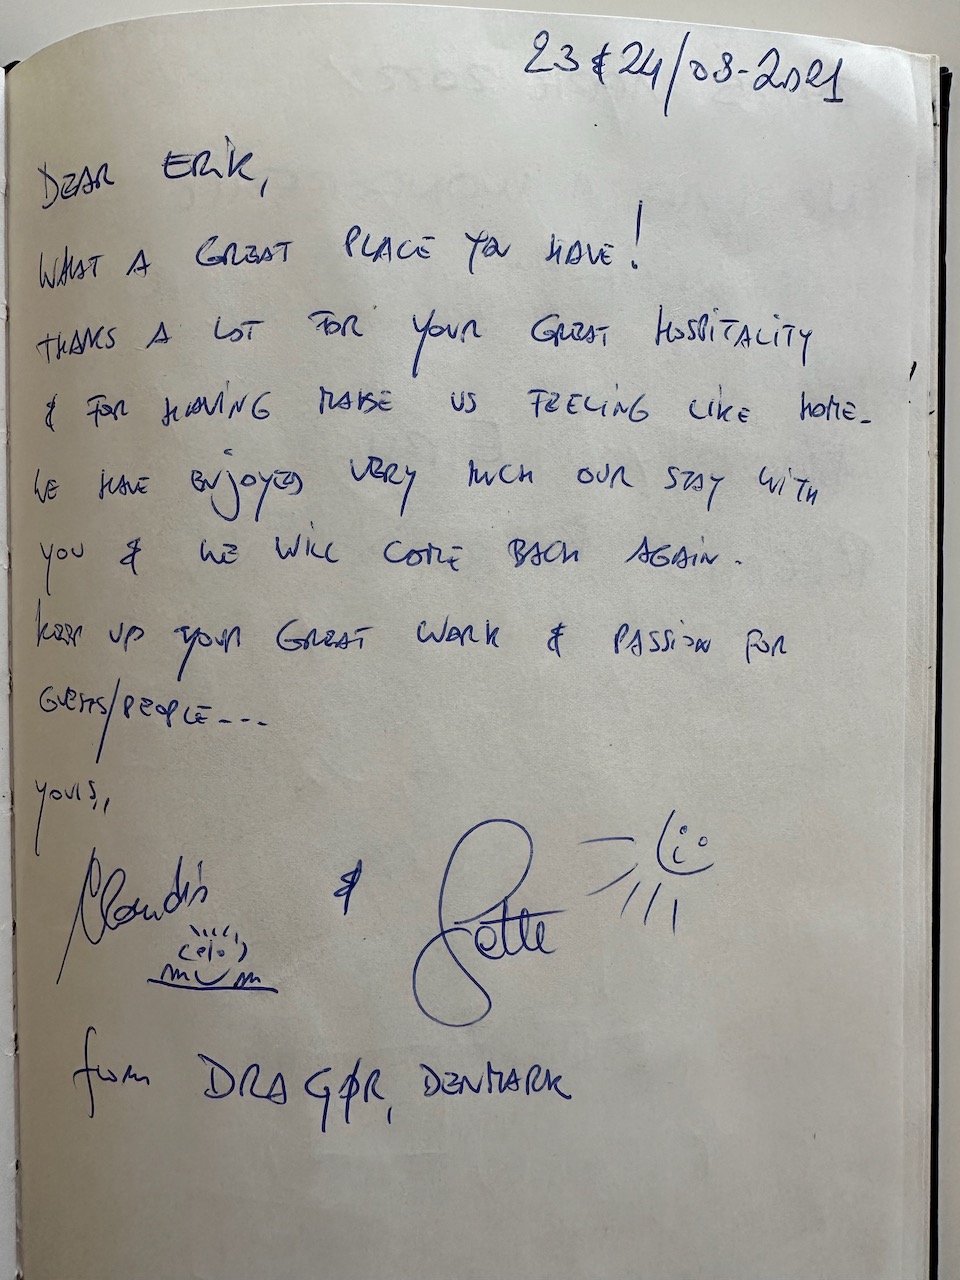 23 & 24/08-2021
DEAR ERIK,
WHAT A GREAT PLACE YOU HAVE!
THANKS A LOT FOR YOUR GREAT HOSPITALITY
& FOR HAVING MAKE US FEELING LIKE HOME-
WE HAVE ENJOYED VERY MUCH OUR STAY WITH
YOU & WE WILL COME BACK AGAIN.
KEEP UP YOUR GREAT WORK & PASSION FOR
GUESTS/PEOPLE---
yours,,
&
from DRAGØR, DENMARK